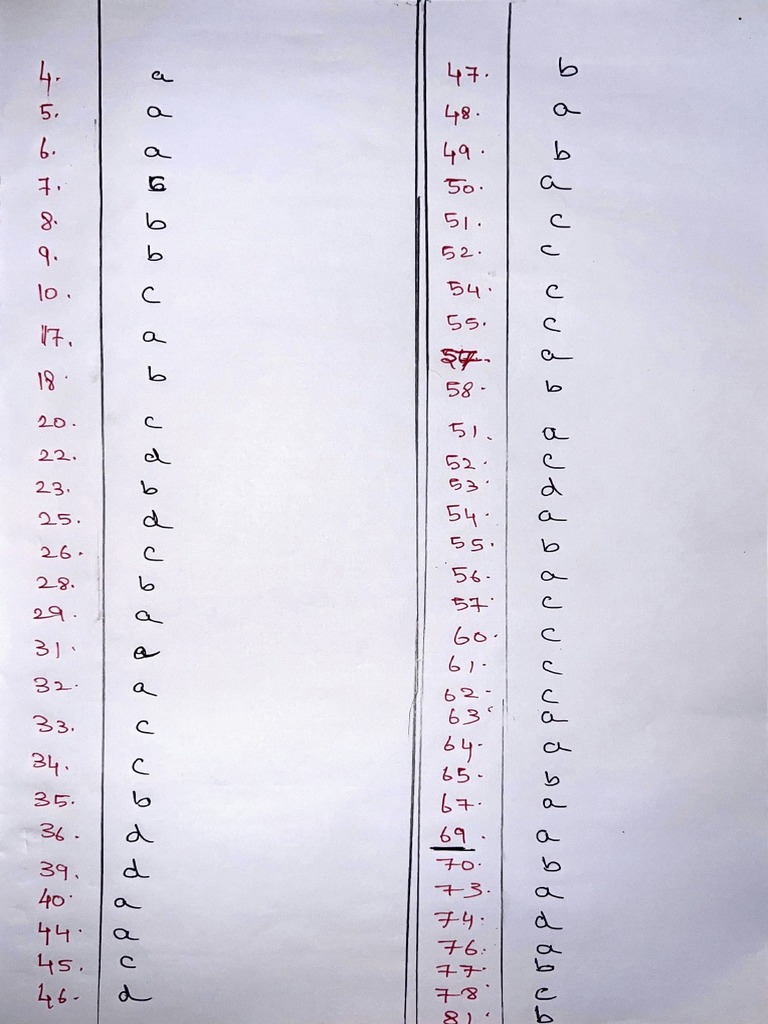 4. a
5. a
6. a
7.
8. b
9. b
10. c
17. a
18. b
20. c
22. d
23. b
25. d
26. c
28. b
29. a
31. a
32. a
33. c
34. c
35. b
36. d
39. d
40. a
44. a
45. c
46. d
47. b
48. a
49. b
50. a
51. c
52. c
54. c
55. c
57. a
58. b
51. a
52. c
53. d
54. a
55. b
56. a
57. c
60. c
61. c
62. c
63. a
64. a
65. b
67. a
69. a
70. b
73. a
74. d
76. a
77. b
78. c
81. b